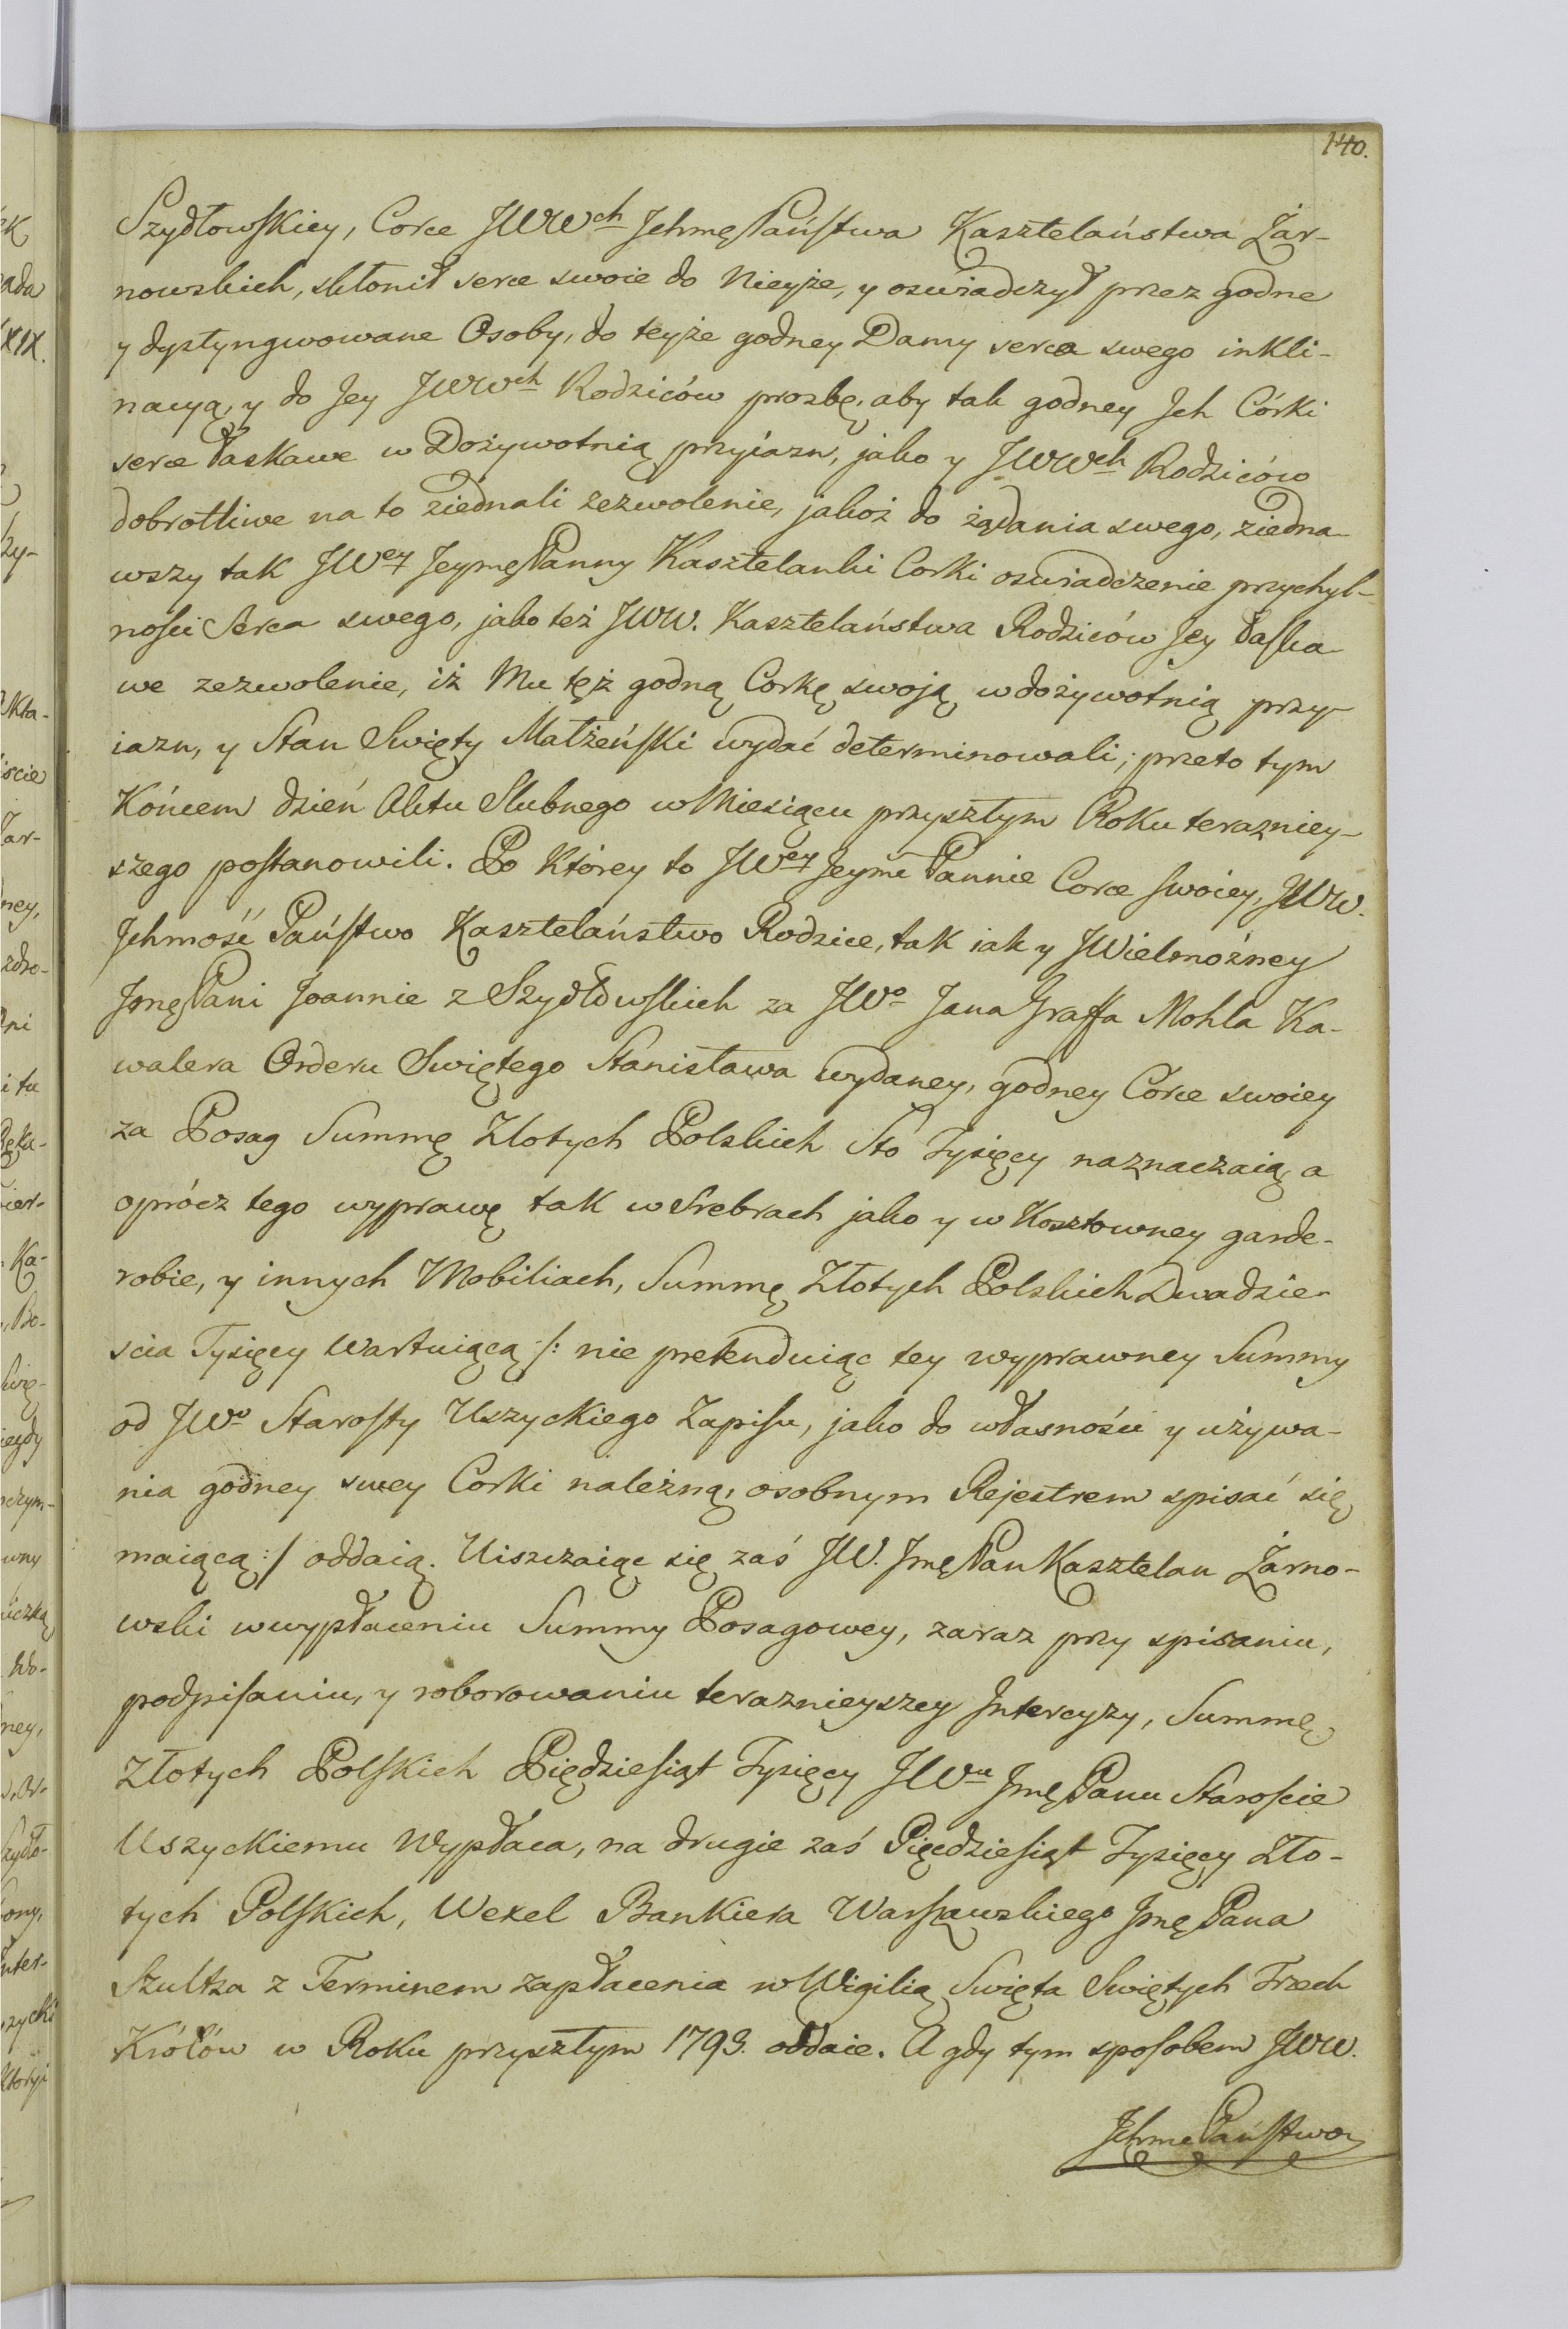 140.
Szydłowskiey, Corce JWWch Jchmę Państwa Kasztelaństwa Żar-
nowskich, skłonił serce swoie do Nieyże, y oswiadczył przez godne
y dystyngwowane Osoby, do teyże godney Damy serca swego inkli-
nacyą, y do Jey JWWch Rodziców prozbę, aby tak godney Jch Córki
serce łaskawe w Dożywotnią przyiazn, jako y JWWch Rodziców
dobrotliwe na to ziednali zezwolenie, jakoż do żądania swego, ziedna-
wszy tak JWey Jeymę Panny Kasztelanki Corki oswiadczenie przychyl-
ności Serca swego, jako też JWW. Kasztelaństwa Rodziców Jey łaska-
we zezwolenie, iż Mu tęż godną Corkę swoją w dożywotnią przy-
iazn, y Stan Swięty Małżeński wydać determinowali; przeto tym
Końcem dzień Aktu Slubnego w Miesiącu przyszłym Roku terazniey-
szego postanowili. Po Którey to JWey Jeyme Pannie Corce swoiey, JWW.
Jchmość Państwo Kasztelaństwo Rodzice, tak iak y JWielmożney
Jmę Pani Joannie z Szydłowskich za JWo Jana Graffa Mohla Ka-
walera Orderu Swiętego Stanisława wydaney, godney Córce swoiey
za Posag Summę Złotych Polskich Sto Tysięcy naznaczaią, a
oprócz tego wyprawę tak w Srebrach jako y w Kosztowney garde-
robie, y innych Mobiliach, Summę Złotych Polskich Dwadzie-
scia Tysięcy Wartuiącą /: nie pretenduiąc tey wyprawney Summy
od JWo Starosty Uszyckiego Zapisu, jako do własności y używa-
nia godney swey Corki należną, osobnym Rejestrem spisać się
maiącą :/ oddaią. Uiszczaiąc się zaś JW. Jmę Pan Kasztelan Żarno-
wski w wypłaceniu Summy Posagowey, zaraz przy spisaniu,
podpisaniu, y roborowaniu teraznieyszey Jntercyzy, Summę
Złotych Polskich Pięćdziesiąt Tysięcy JWu Jmę Panu Staroście
Uszyckiemu Wypłaca, na drugie zaś Pięćdziesiąt Tysięcy Zło-
tych Polskich, Wexel Bankiera Warszawskiego Jmę Pana
Szultza z Terminem zapłacenia w Wigilią Swięta Swiętych Trzech
Królów w Roku przyszłym 1793. oddaie. A gdy tym sposobem JWW.
Jchmę Państwo